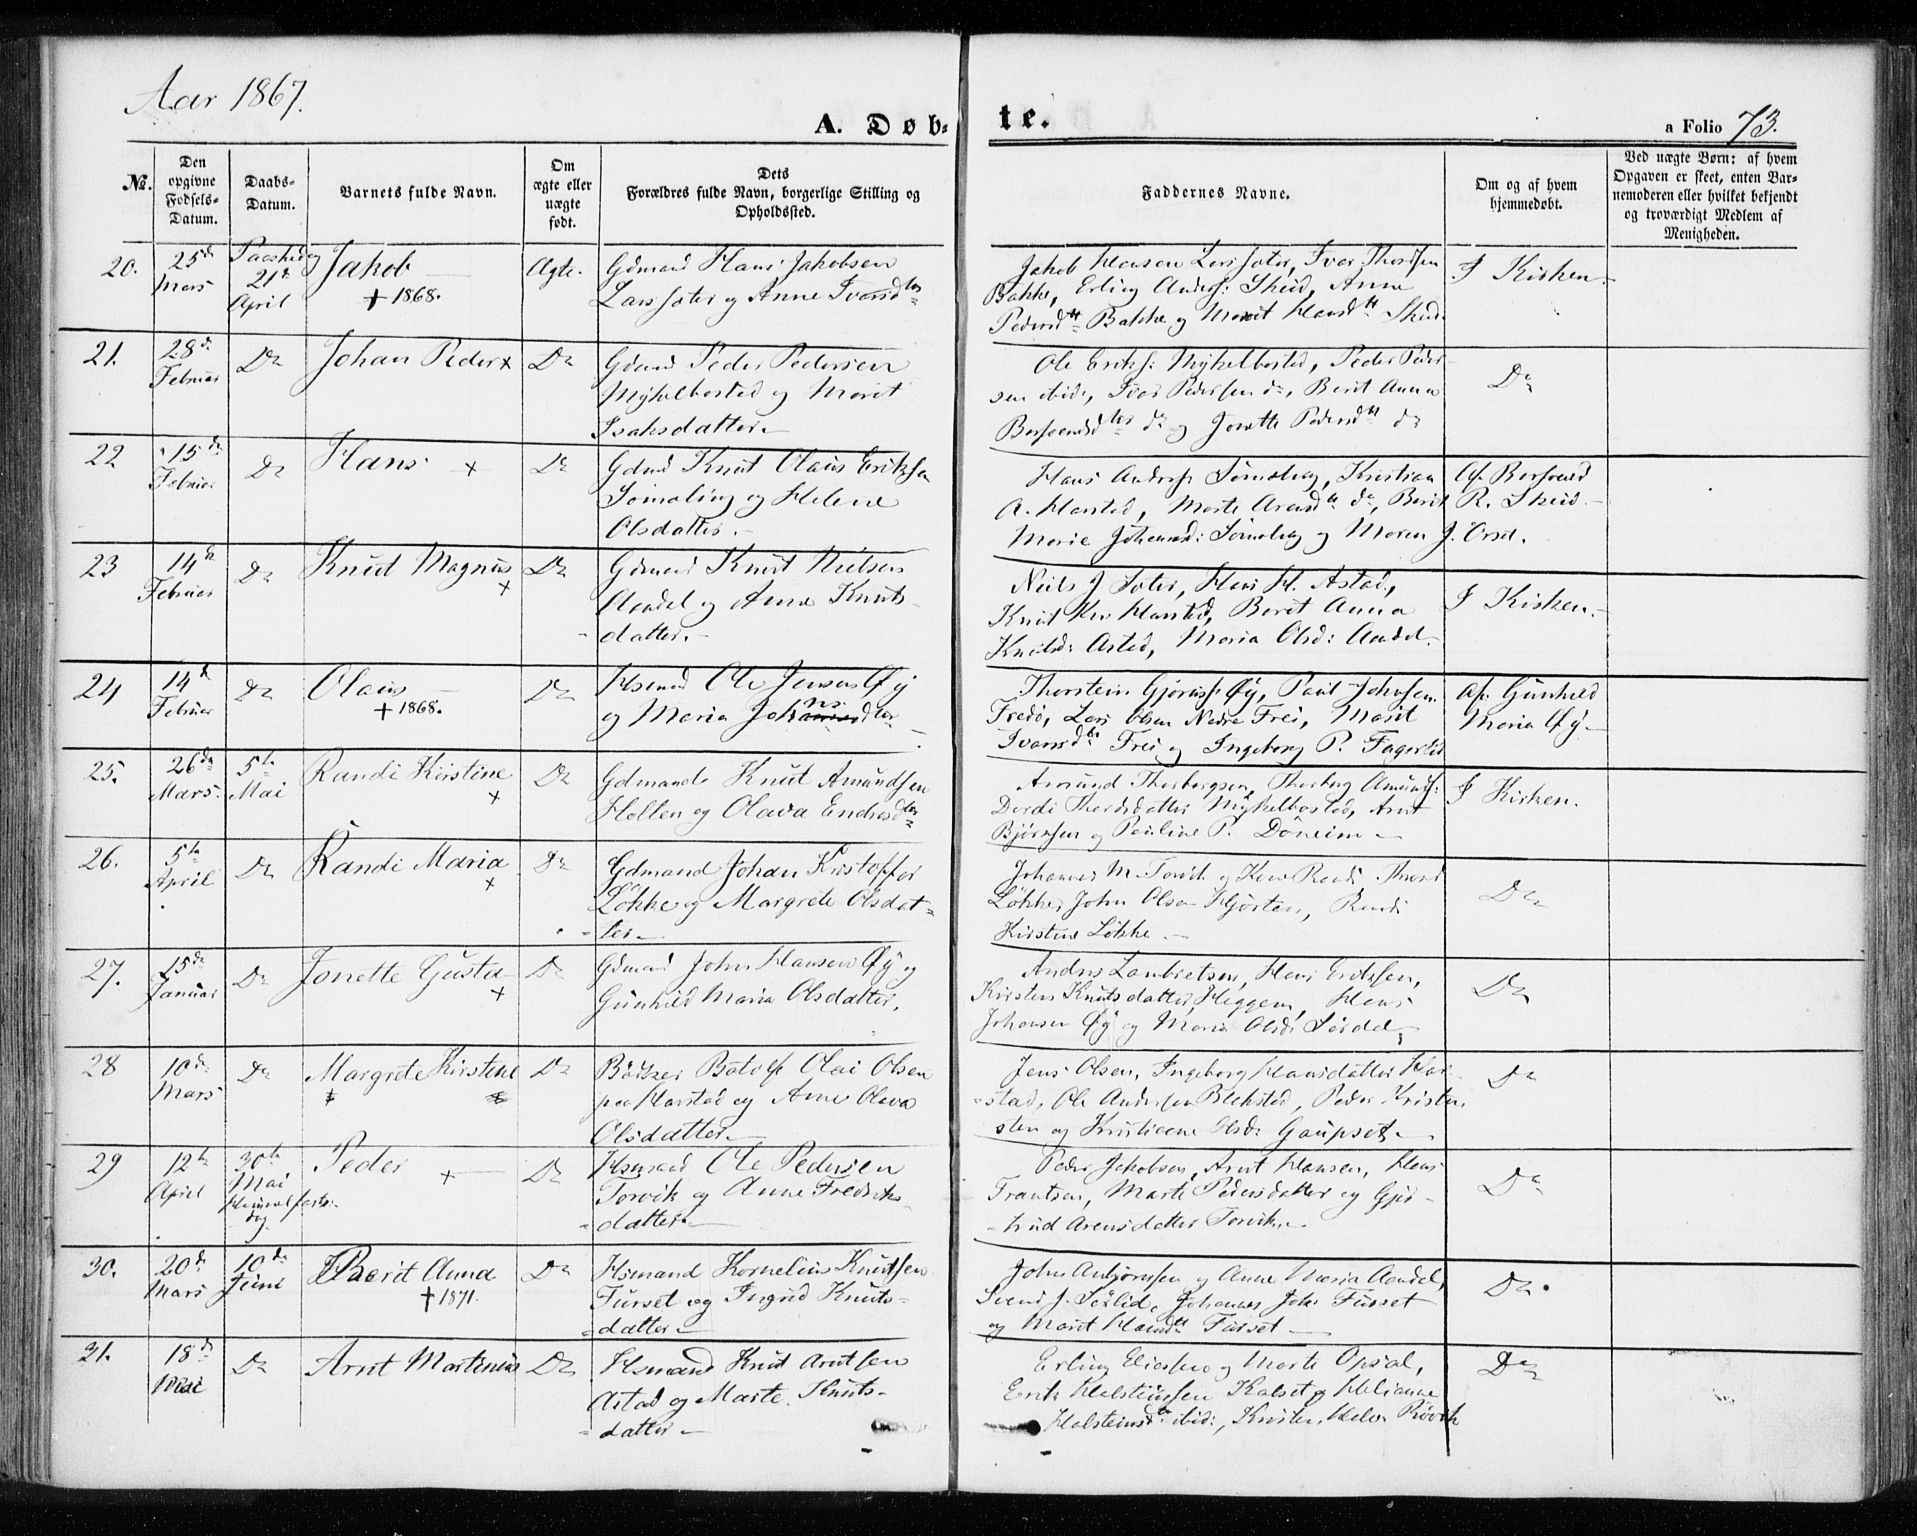 Aar 1867.
A. Døb-
te.
a Folio 73.
No.
Den opgivne Fødsels-Datum.
Daabs-Datum.
Barnets fulde Navn.
Om ægte eller uægte født.
Dets Forældres fulde Navn, borgerlige Stilling og Opholdssted.
Faddernes Navne.
Om og af hvem hjemmedøbt.
Ved uægte Børn: af hvem Opgaven er skeet, enten Barnemoderen eller hvilket bekjendt og troværdigt Medlem af Menigheden.
20. 25de Mars 21de April Jakob † 1868. Ægte.
Gdmand Hans Jakobsen
Larssæter og Anne Iversdter
Jakob Hansen Larssæter, Iver
Bakke, Erling Anders: Skud, Anne
Pedersdtr Bakke og Marit Hansdtr Skud.
I Kirken.
21. 28de Februar Do Johan Peder + Do
Gdmand Peder Pedersen
Myhelbostad og Marit
Isaksdatter.
Ole Eriks: Myhelbostad, Peder Peder-
sen ibid, Iver Pedersen do, Berit Anna
do og Pedersdtr do
Do
22 15de Februar Do Hans + Do
Gdmd Knut Olaus Eriksen
og Helene
Olsdatter.
Hans Kristian
A. Harstad, Marte do, Berit
Marie og Maren J. Orset.
Af
R. Skud.
23 14de Februar Do Knut Magnus + Do
Gdmand Knut Nielsen
Aandal og Anne Knuts-
datter.
Niels J. Sæter, Hans H. Astad,
Knut Harstad, Berit Anna
Knutsd: Astad, Maria Olsd: Aandal.
I Kirken.
24 14de Februar Do Olaus † 1868. Do
Hsmand Ole Jensen Øy
og Maria Johnsdter
Thorstein Øy, Paul Johnsen
Fredø, Lars Olsen Nedre Frei, Marit
Iversdtr Frei og Ingeborg P. Fagerlid
Af Gunhild
Maria Øy.
25. 26de Mars. 5te Mai Randi Kirstine + Do
Gdmand Knut Amundsen
Hollen og Olava Endresdter
Amund Thorbergsen, Thorberg Amunds:
Dordi Thordsdatter Myhelbostad, Arnt
Bjørnsen og Pauline P. Døneim
I Kirken.
26. 5te April Do Randi Maria + Do
Gdmand Johan Kristoffer
Løkke og Margrete Olsdat-
ter.
Johannes M. Torvik og Randi
Løkke, John Olsen Hjorten, Randi
Kirstine Løkke.
Do
27. 15de Januar Do Jonette Gusta + Do
Gdmand John Hansen Øy og
Gunhild Maria Olsdatter.
Anders Hans Eriksen,
Kirsten Knutsdatter Heggem, Hans
Johansen Øy og Maria Olsd:
Do
28 10de Mars Do Margrete Kirstine Do
Bødker Botolf Olai Olsen
paa Harstad og Anne Olava
Olsdatter.
Jens Olsen, Ingeborg Hansdatter Har-
stad, Ole Andersen Blekstad, Peder Kristen-
sen og Olsd: Gaupset.
Do
29 12te April 30te Mai Himmelfartsdag Peder + Do
Hsmand Ole Pedersen
Torvik og Anne Fredriks-
datter.
Peder Jakobsen, Arnt Hansen, Hans
Frantsen, Marte Pedersdatter og Gjer-
trud Arensdatter Torvik.
Do
30. 20de Mars 10de Juni Berit Anna † 1871. Do
Hsmand Kornelius Knutsen
Furset og Ingrid Knuts-
datter.
John Anbjørnsen og Anne Maria Aandal,
Svend J. Sørlid, Johannes Johs Furset
og Marit Furset
Do.
31. 18de Mai Do Arnt Martinus Do
Hsmand Knut Arntsen
Astad og Marte Knuts-
datter.
Erling Eliassen og Marte Opsal,
Erik Halsteinsen Kalset og Helianna
Halsteinsdtr ibid:,
Do